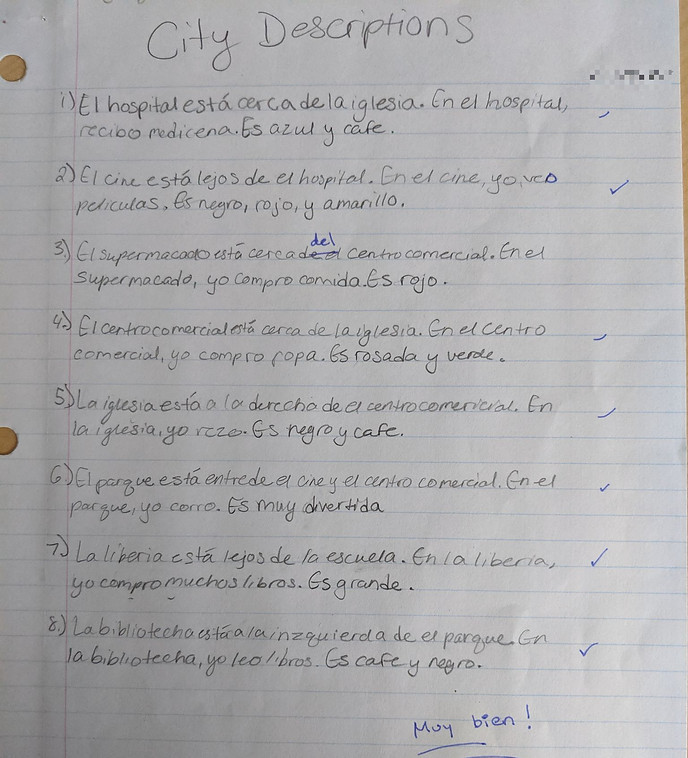 City Descriptions
1) El hospital está cerca de la iglesia. En el hospital,
recibo medicena. Es azul y cafe.
2) El cine está lejos de el hospital. En el cine, yo, veo
peliculas. Es negro, rojo, y amarillo.
del
3.) El supermacado está cerca de el centro comercial. En el
supermacado, yo compro comida. Es rojo.
4.) El centro comercial está cerca de la iglesia. En el centro
comercial, yo compro ropa. Es rosada y verde.
5.) La iglesia está a la derecha de el centro comericial. En
la iglesia, yo rezo. Es negro y cafe.
6.) El parque está entre de el cine y el centro comercial. En el
parque, yo corro. Es muy divertida
7.) La liberia está lejos de la escuela. En la liberia,
yo compro muchos libros. Es grande.
8.) La bibliotecha está a la inzquierda de el parque. En
la bibliotecha, yo leo libros. Es cafe y negro.
Muy bien!